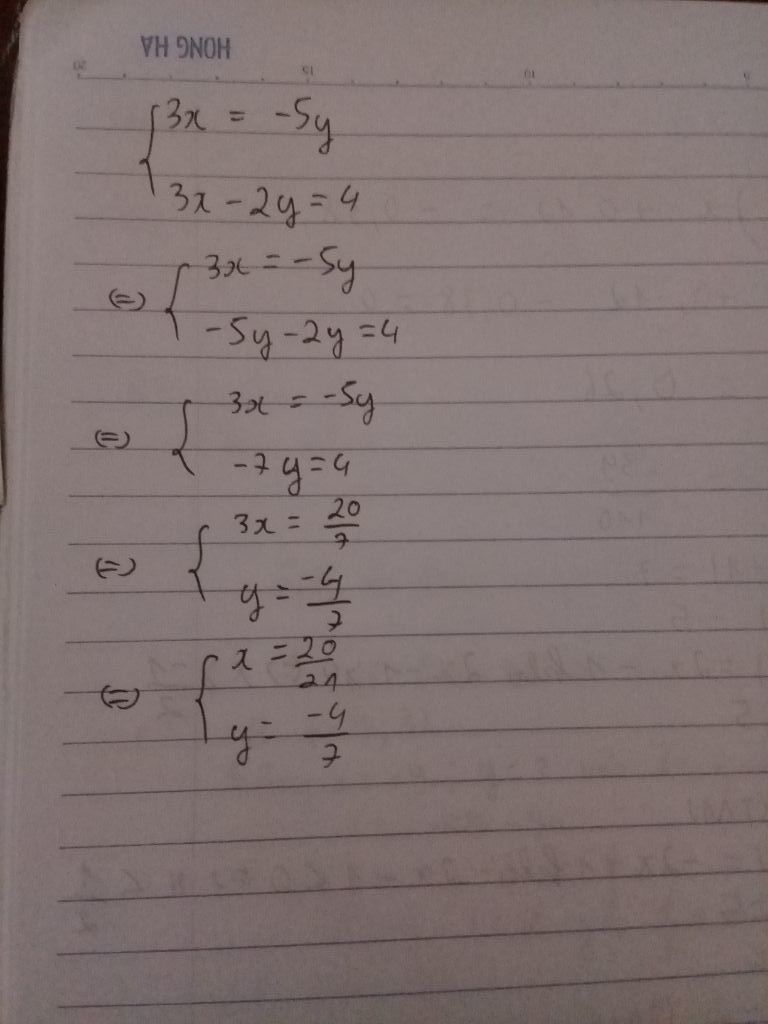 HONG HA
20 15 10
{ 3x = -5y
3x - 2y = 4
(=) { 3x = -5y
-5y - 2y = 4
(=) { 3x = -5y
-7y = 4
(=) { 3x = 20/7
y = -4/7
(=) { x = 20/21
y = -4/7